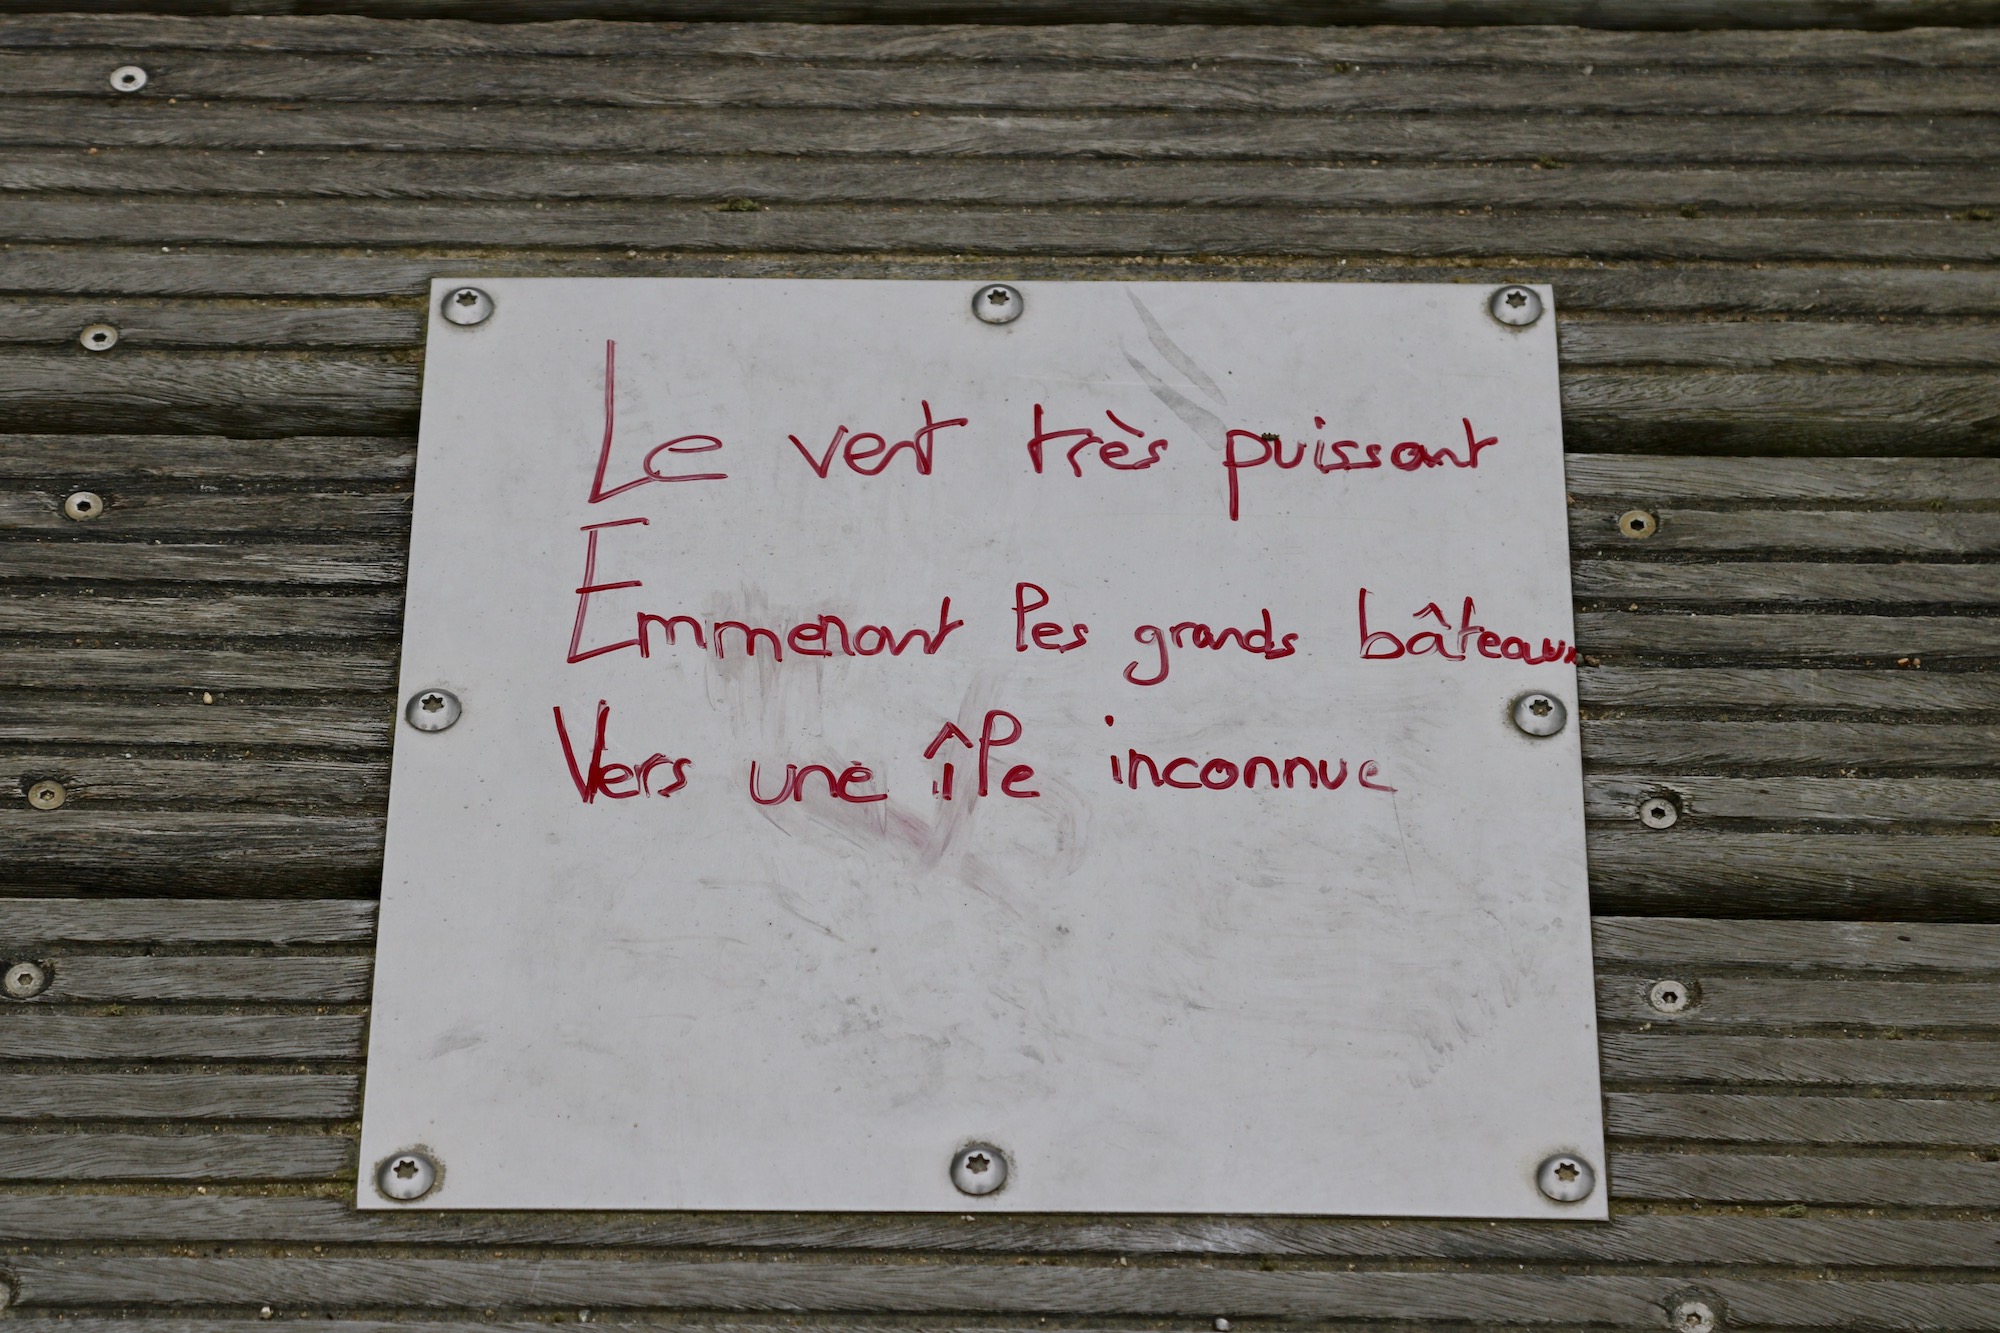 Le vent très puissant
Emmenant les grands bâteaux
Vers une île inconnue